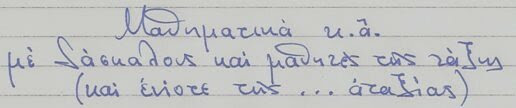 Μαθηματικά κ.ἄ.
μέ δάσκαλους καί μαθητές τῆς τάξης
(καί ἐνίοτε τῆς ... ἀταξίας)